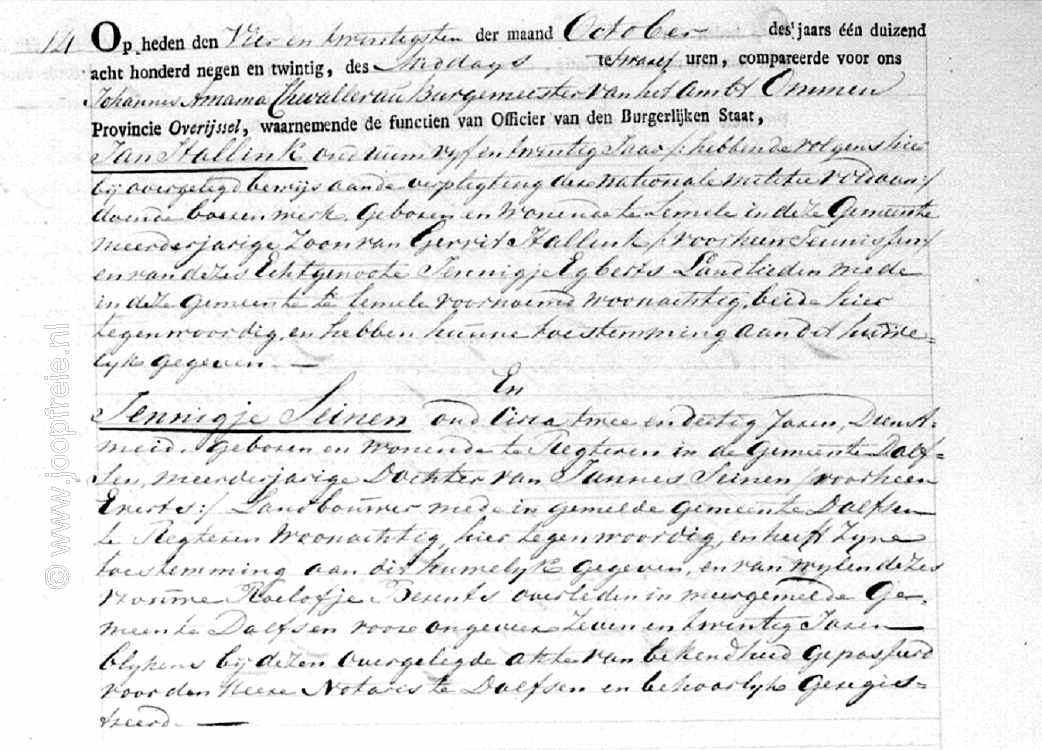 14 Op heden den Vier en twintigsten der maand October des jaars één duizend
acht honderd negen en twintig, des Middags te twaalf uren, compareerde voor ons
Johannes Amama Chevallerau Burgemeester van het ambt Ommen
Provincie Overijssel, waarnemende de functien van Officier van den Burgerlijken Staat,
Jan Hallink oud ruim vyf en twintig Jaar /: hebbende volgens hier
bij overgelegd bewijs aan de verpligting der nationale militie voldaan :/
doende boeren werk, geboren en wonende te Lemele in deze Gemeente
meerderjarige Zoon van Gerrit Hallink /: voorheen Teunissen :/
en van dezes Echtgenoote Jennigje Egberts Landlieden mede
in deze gemeente te Lemele voornoemd woonachtig, beide hier
tegenwoordig, en hebben hunne toestemming aan dit huwe-
lyk gegeven. —
En
Jennigje Seinen oud circa twee en dertig Jaren, Dienst-
meid, geboren en wonende te Regteren in de Gemeente Dalf-
sen, meerderjarige Dochter van Jannes Seinen /: voorheen
Everts :/ Landbouwer mede in gemelde gemeente Dalfsen
te Regteren woonachtig, hier tegenwoordig, en heeft zyne
toestemming aan dit huwelyk gegeven, en van wylen dezes
vrouwe Roelofje Berents overleden in meergemelde Ge-
meente Dalfsen voor ongeveer zeven en twintig Jaren
blykens bij dezen overgelegde akte van bekendheid gepasseerd
voor den Heere Notaris te Dalfsen en behoorlyk geregis-
treerd. —
© www.joopfreie.nl